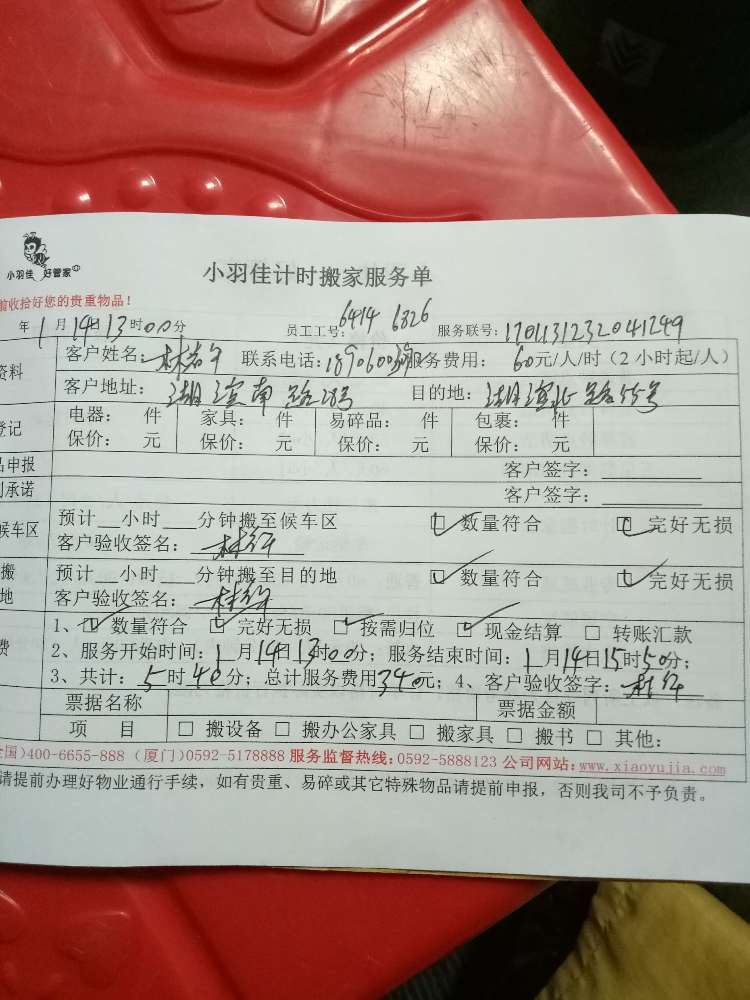 小羽佳 好管家
小羽佳计时搬家服务单
前收拾好您的贵重物品!
年1月14日13时00分 员工工号:6414 6326 服务联号:1701131232041249
资料 客户姓名: 林 联系电话: 服务费用: 60元/人/时(2小时起/人)
客户地址: 湖滨南路28号 目的地: 湖滨北路55号
登记 电器: 件 家具: 件 易碎品: 件 包裹: 件
保价: 元 保价: 元 保价: 元 保价: 元
品申报 客户签字:
承诺 客户签字:
候车区 预计__小时___分钟搬至候车区 □ 数量符合 □ 完好无损
客户验收签名: 林
搬 预计__小时___分钟搬至目的地 □ 数量符合 □ 完好无损
地 客户验收签名: 林
费 1、□ 数量符合 □ 完好无损 □ 按需归位 □ 现金结算 □ 转账汇款
2、服务开始时间:1月14日13时00分;服务结束时间:1月14日15时50分;
3、共计:5时40分;总计服务费用340元;4、客户验收签字:林
票据名称 票据金额
项 目 □ 搬设备 □ 搬办公家具 □ 搬家具 □ 搬书 □ 其他:
全国)400-6655-888 (厦门)0592-5178888 服务监督热线:0592-5888123 公司网站:www.xiaoyujia.com
请提前办理好物业通行手续,如有贵重、易碎或其它特殊物品请提前申报,否则我司不予负责。